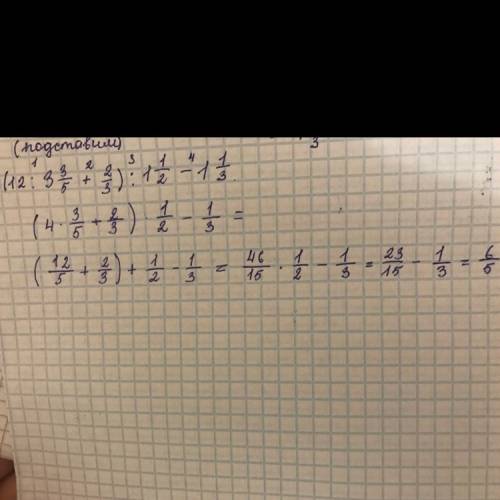 (подставим) 3
(12 : 3 3/5 + 2/3) : 1 1/2 - 1 1/3
1 2 3 4
(4 · 3/5 + 2/3) · 1/2 - 1/3 =
(12/5 + 2/3) + 1/2 - 1/3 = 46/15 · 1/2 - 1/3 = 23/15 - 1/3 = 6/5